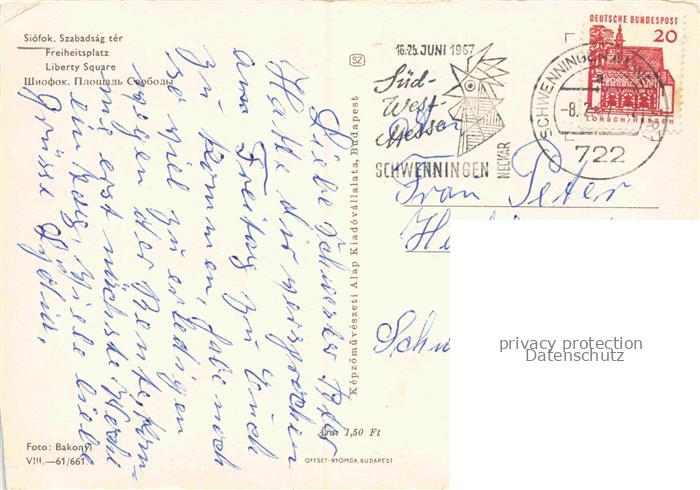 Siófok. Szabadság tér
Freiheitsplatz
Liberty Square
Шиофок. Площадь Свободы
SZ
16-25. JUNI 1967
Süd-
West-
Messe
SCHWENNINGEN
NECKAR
DEUTSCHE BUNDESPOST
20
LORSCH/HESSEN
SCHWENNINGEN
-8.2
722
Liebe Schwester
Hatte dir versprochen
am Freitag zu Euch
zu kommen, habe noch
so viel zu erledigen
wegen der Rente, kom-
me erst nächste Woche
ein Tag, Viele liebe
Grüsse
Frau Peter
Képzőművészeti Alap Kiadóvállalata, Budapest
Ára: 1,50 Ft
Foto: Bakonyi
VIII.—61/661
OFFSET-NYOMDA, BUDAPEST
privacy protection
Datenschutz